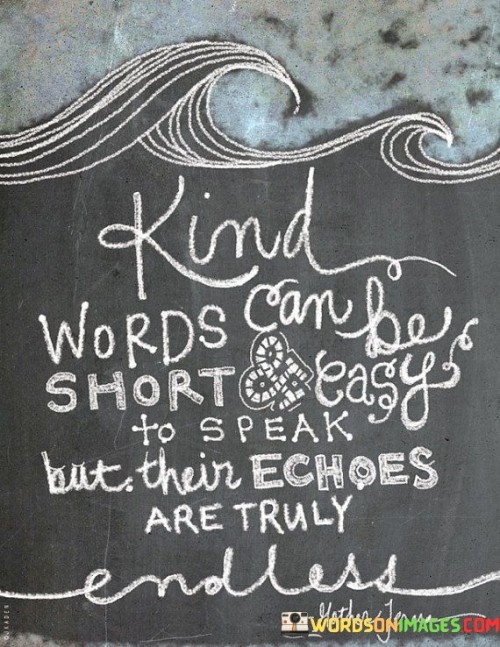 Kind
WORDS can be
SHORT & easy
to SPEAK
but their ECHOES
ARE TRULY
endless
Mother Teresa
WORDSONIMAGES.COM